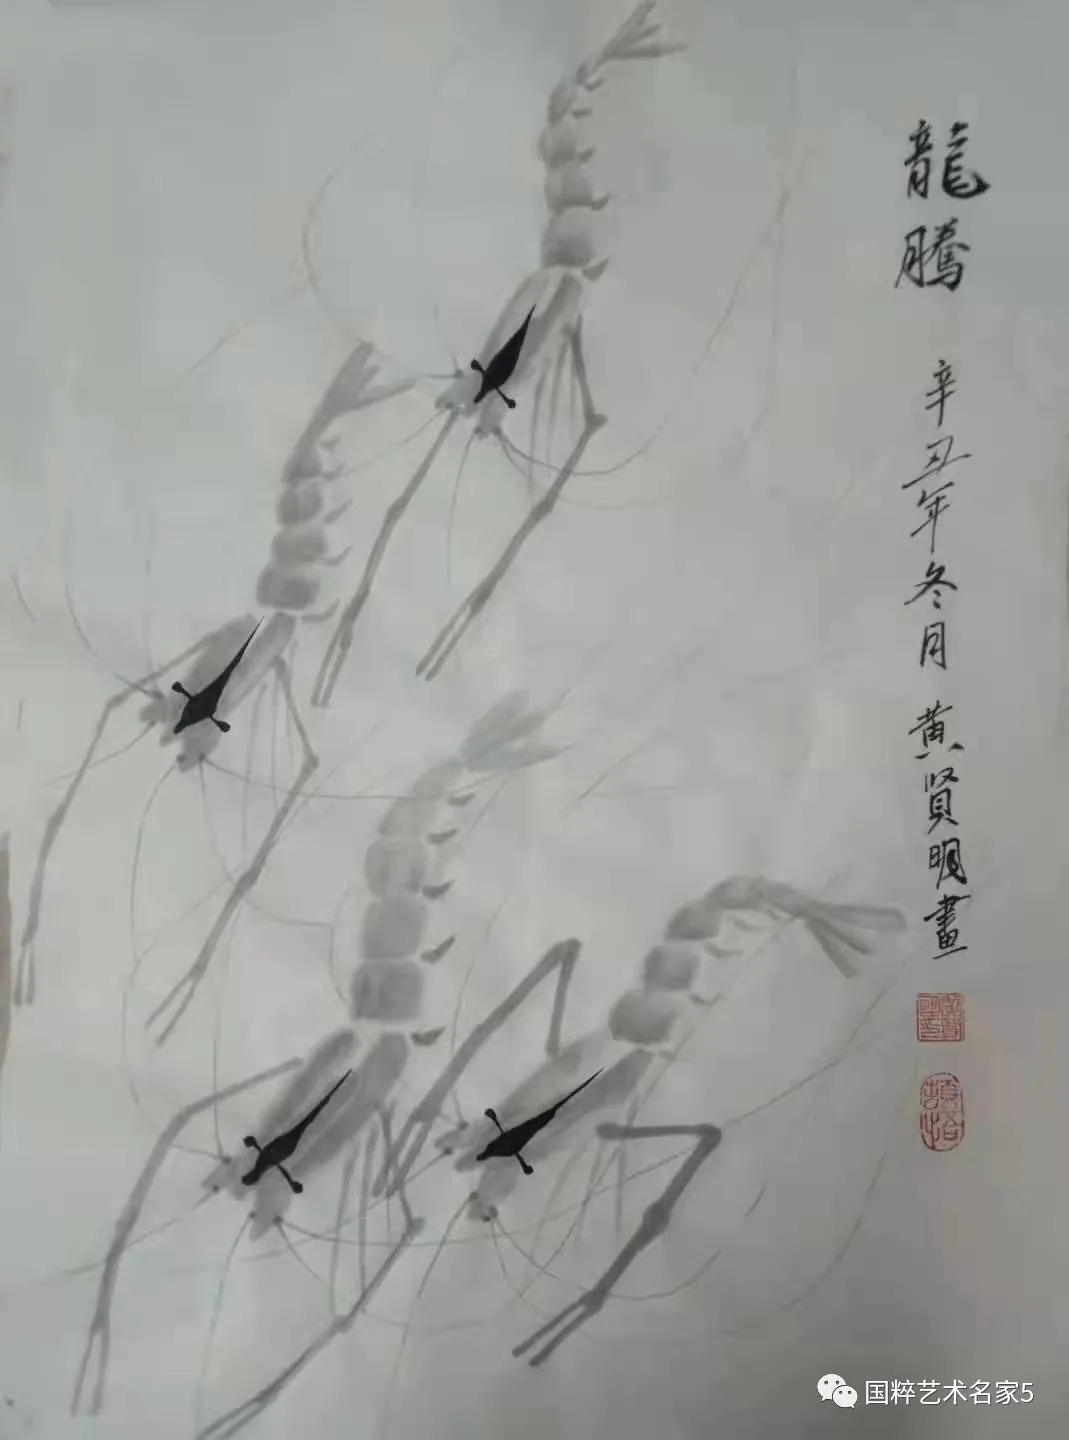 龍騰
辛丑年冬月
黄賢明畫
国粹艺术名家5